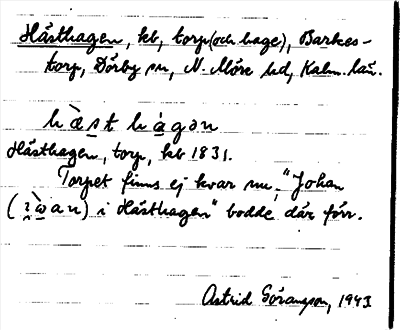 Hästhagen, kb, torp (och hage), Barkes-
torp, Dörby sn, N. Möre hd, Kalm. län.
hæ̀st hàgən
Hästhagen, torp, kb 1831.
Torpet finns ej kvar nu, "Johan
(ìwan) i Hästhagen" bodde där förr.
Astrid Göransson, 1943